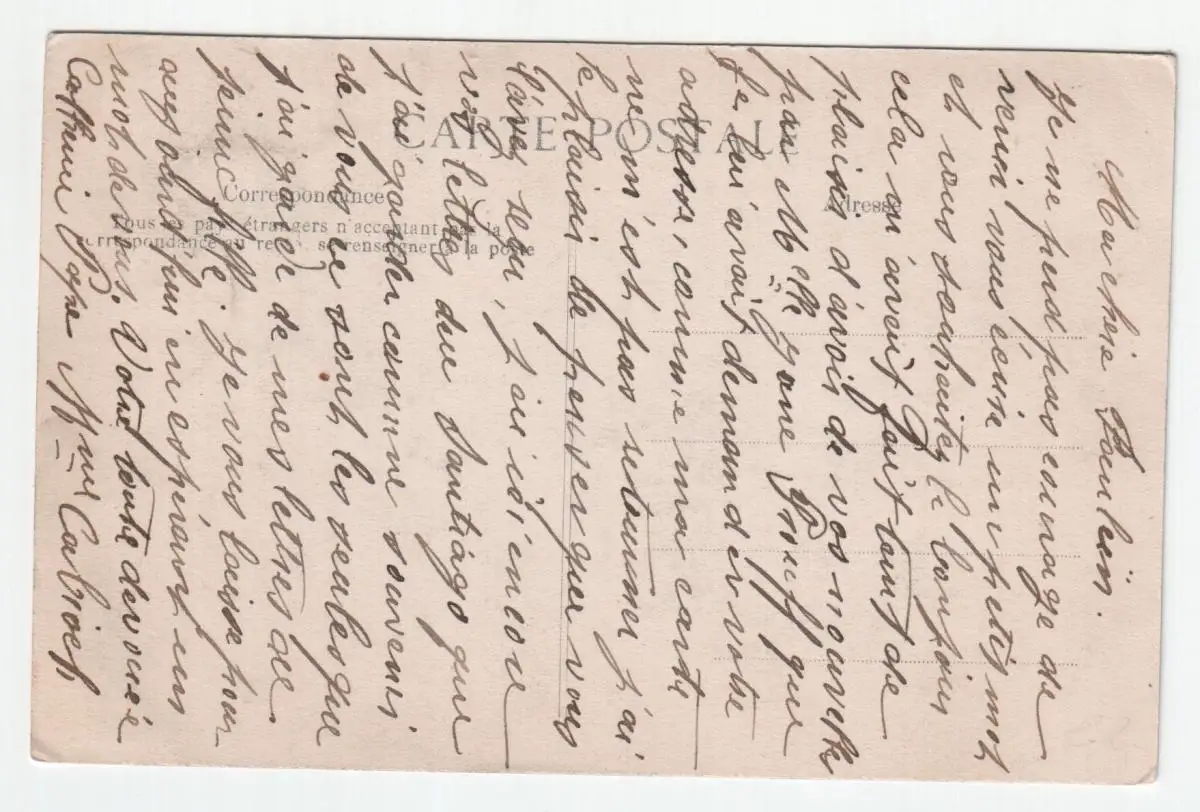 CARTE POSTALE
Correspondance
Tous les pays étrangers n'acceptant pas la
correspondance au recto, se renseigner à la poste
Adresse
Ma chère
Je me perd pas courage de
venir vous écrire un petit mot
et vous souhaitez le bonjour
cela m'aveut fait tant de
plaisir d'avoir de vos nouvelle
par Melle que
Je lui avais demander votre
adresse, comme ma carte
ne m'est pas retourner j'ai
le plaisir de penser que vous
l'avez reçu, j'ai ici encore
vos lettres du Santiago que
j'ai garder comme souvenir
de vous ce sont les seules que
j'ai garder de mes lettres de
jeune fille. Je vous laisse pour
aujourd'hui en espérant un
mot de vous. Votre toute devouée
Mme